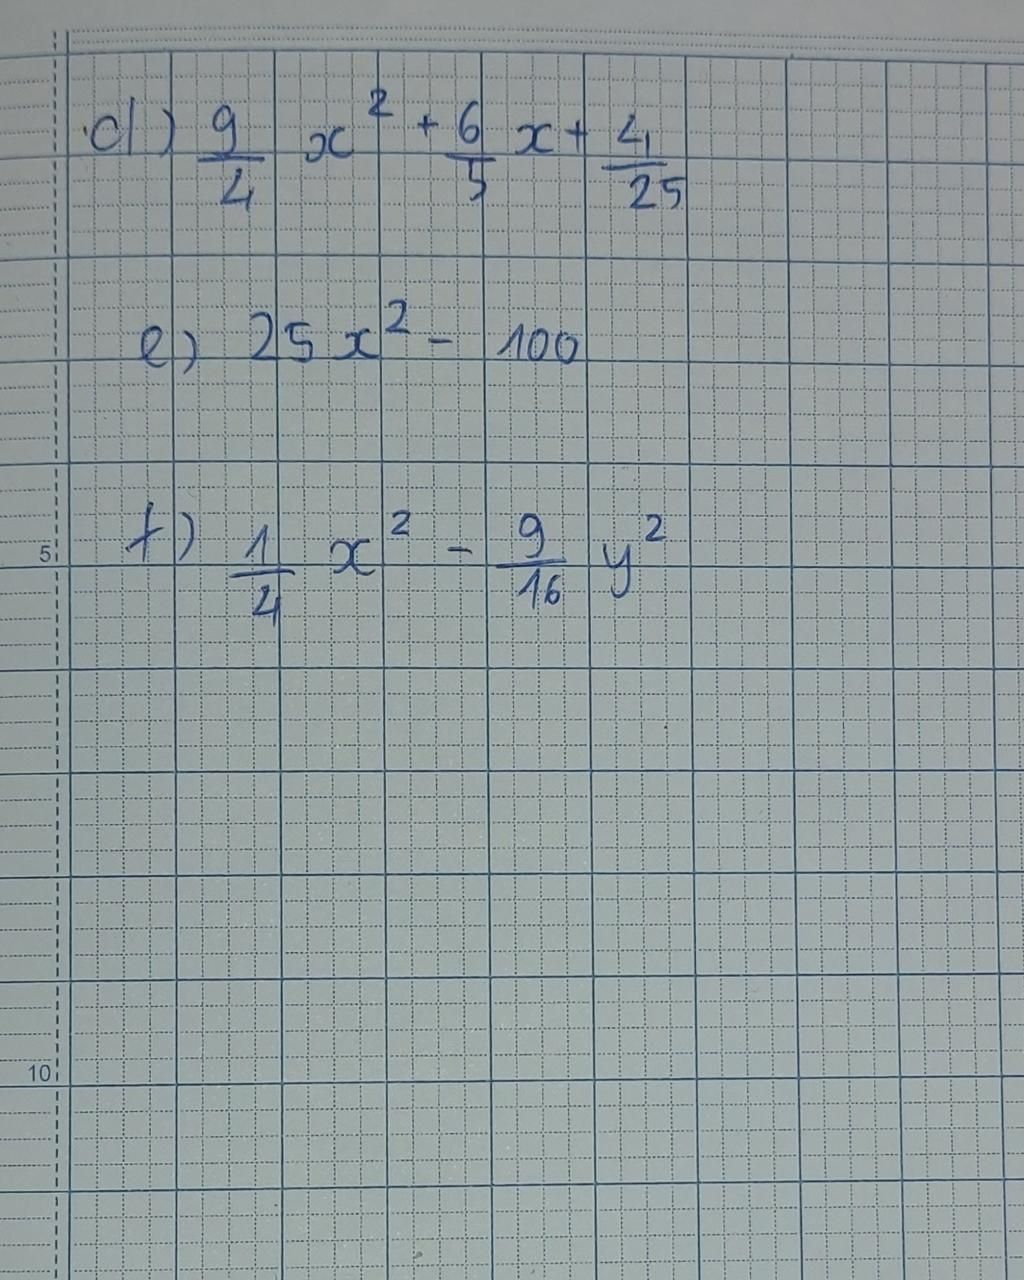 d) 9/4 x² + 6/5 x + 4/25
e) 25x² - 100
f) 1/4 x² - 9/16 y²
5
10